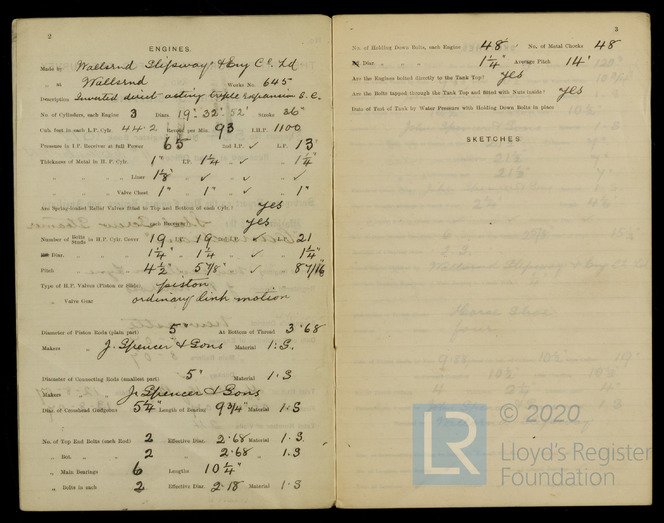 2
ENGINES.
Made by Wallsend Slipway & Eng Co. Ld
at Wallsend Works No. 645
Description Inverted direct-acting triple expansion S.C.
No. of Cylinders, each Engine 3 Diars 19" 32" 52" Stroke 36"
Cub. feet in each L.P. Cylr. 44.2 Revns per Min. 93 I.H.P. 1100
Pressure in 1P. Receiver at full Power 65 2nd I.P. ✓ L.P. 13
Thickness of Metal in H.P. Cylr. 1" I.P. 1 1/4" ✓ 1 1/4"
" " Liner 1 1/8" ✓ ✓ ✓
" " Valve Chest 1" " 1" ✓ " 1"
Are Spring-loaded Relief Valves fitted to Top and Bottom of each Cylr.? yes
" " each Receiver yes
Number of Bolts Studs in H.P. Cylr. Cover 19 I.P. 19 ✓ 21
Diar. 1 1/4" 1 1/4" ✓ 1 1/4"
Pitch 4 1/2" 5 7/8" ✓ 8 7/16"
Type of H.P. Valves (Piston or slide) piston
" Valve Gear ordinary link motion
Diameter of Piston Rods (plain part) 5" At Bottom of Thread 3.68
Makers J. Spencer & Sons Material I.S.
Diameter of Connecting Rods (smallest part) 5" Material I.S
Makers J. Spencer & Sons
Diar. of Crosshead Gudgeons 5 1/4" Length of Bearing 9 3/4" Material I.S
No. of Top End Bolts (each Rod) 2 Effective Diar. 2.68 Material I.S.
" Bot. " " 2 " 2.68 " I.S
" Main Bearings 6 Lengths 10 1/4"
" Bolts in each 2 Effective Diar. 2.18 Material I.S
3
No. of Holding Down Bolts, each Engine 48 No. of Metal Chocks 48
Diar. 1 1/4" Average Pitch 14"
Are the Engines bolted directly to the Tank Top? yes
Are the Bolts tapped through the Tank Top and fitted with Nuts inside? yes
Date of Test of Tank by Water Pressure with Holding Down Bolts in place
SKETCHES
LR © 2020
Lloyd's Register
Foundation